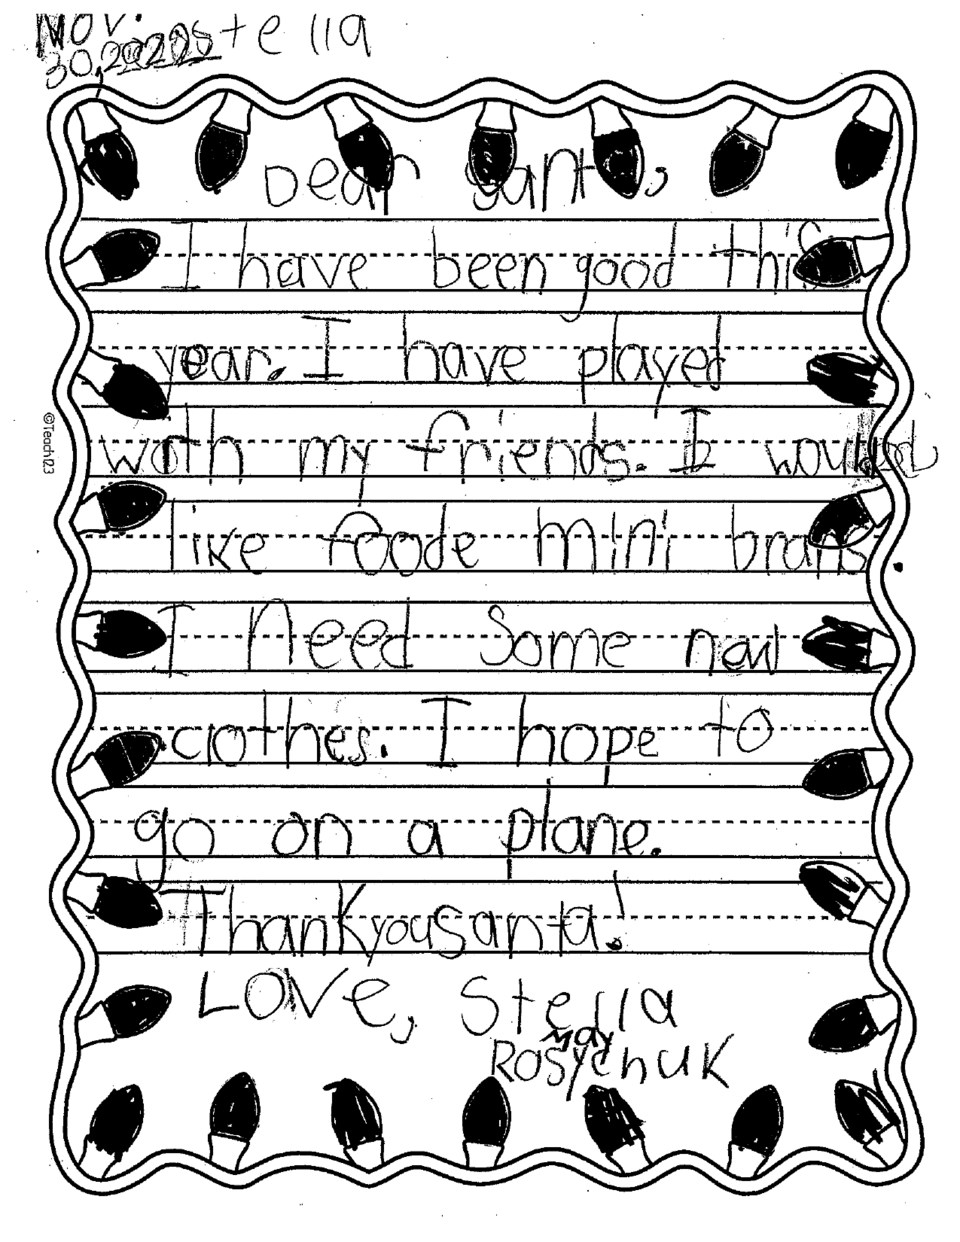 Nov. Stella
30,
Dear Santa,
I have been good this
year. I have played
with my friends. I would
like foode mini brans.
I Need Some now
clothes. I hope to
go on a plane.
Thankyousanta!
Love, Stella
May
Rosychuk
©Teach123